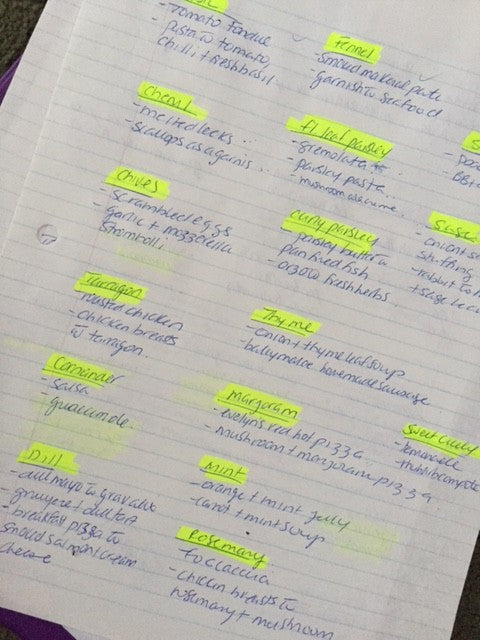 - Tomato Fondue
pasta w tomato,
chilli + fresh basil
Chervil
- melted leeks
- scallops as a garnis...
Chives
- scrambled eggs
garlic + mozzerella
Stromboli
Tarragon
- roasted chicken
- chicken breasts
w tarragon
Coriander
- salsa
- guacamole
Dill
- dill mayo w gravalax
gruyere + dill tart
- breakfast pizza w
smoked salmon + cream
cheese
Fennel
- smoked makeral pate
- garnish w seafood
Fl leaf parsley
- gremolata
- parsley pasta
- mushroom a la creme
curly parsley
- parsley butter w
pan fried fish
- orzo w fresh herbs
Thyme
- onion + thyme leaf soup
- ballymaloe homemade sausage
Marjoram
- evelyns red hot pizza
- mushroom + marjoram pizza
Mint
- orange + mint jelly
- carrot + mint soup
Rosemary
focaccia
- chicken breasts w
rosemary + mushroom
- onion + s
stuffing
- rabbit
+ sage
Sweet Cicely
- lemonade
- rhubarb compote